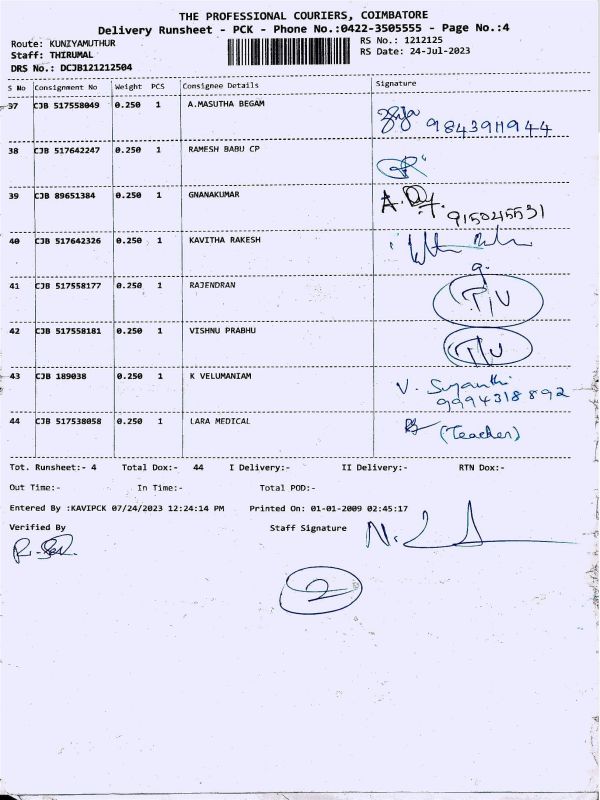 THE PROFESSIONAL COURIERS, COIMBATORE
Delivery Runsheet - PCK - Phone No.:0422-3505555 - Page No.:4
Route: KUNIYAMUTHUR RS No.: 1212125
Staff: THIRUMAL RS Date: 24-Jul-2023
DRS No.: DCJB121212504
S No Consignment No Weight PCS Consignee Details Signature
37 CJB 517558049 0.250 1 A.MASUTHA BEGAM 9843911944
38 CJB 517642247 0.250 1 RAMESH BABU CP
39 CJB 89651384 0.250 1 GNANAKUMAR 915045531
40 CJB 517642326 0.250 1 KAVITHA RAKESH
41 CJB 517558177 0.250 1 RAJENDRAN
42 CJB 517558181 0.250 1 VISHNU PRABHU
43 CJB 189038 0.250 1 K VELUMANIAM V. 9994318892
44 CJB 517538058 0.250 1 LARA MEDICAL (Teacher)
Tot. Runsheet:- 4 Total Dox:- 44 I Delivery:- II Delivery:- RTN Dox:-
Out Time:- In Time:- Total POD:-
Entered By :KAVIPCK 07/24/2023 12:24:14 PM Printed On: 01-01-2009 02:45:17
Verified By Staff Signature
2